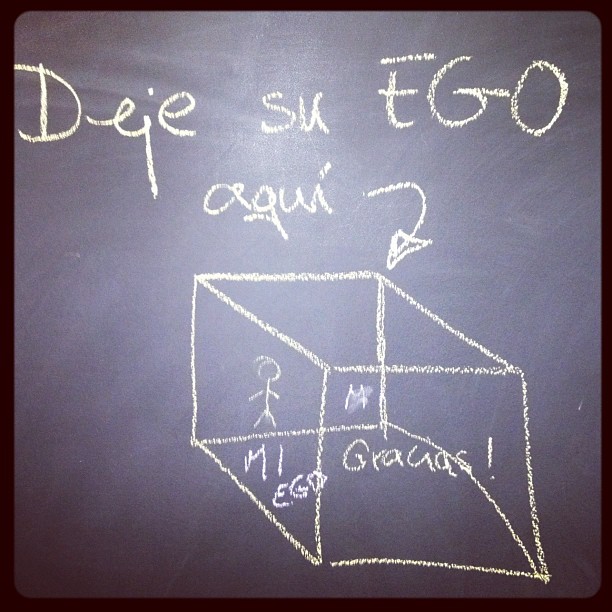 Deje su EGO
aquí
M
MI
EGO
Gracias!